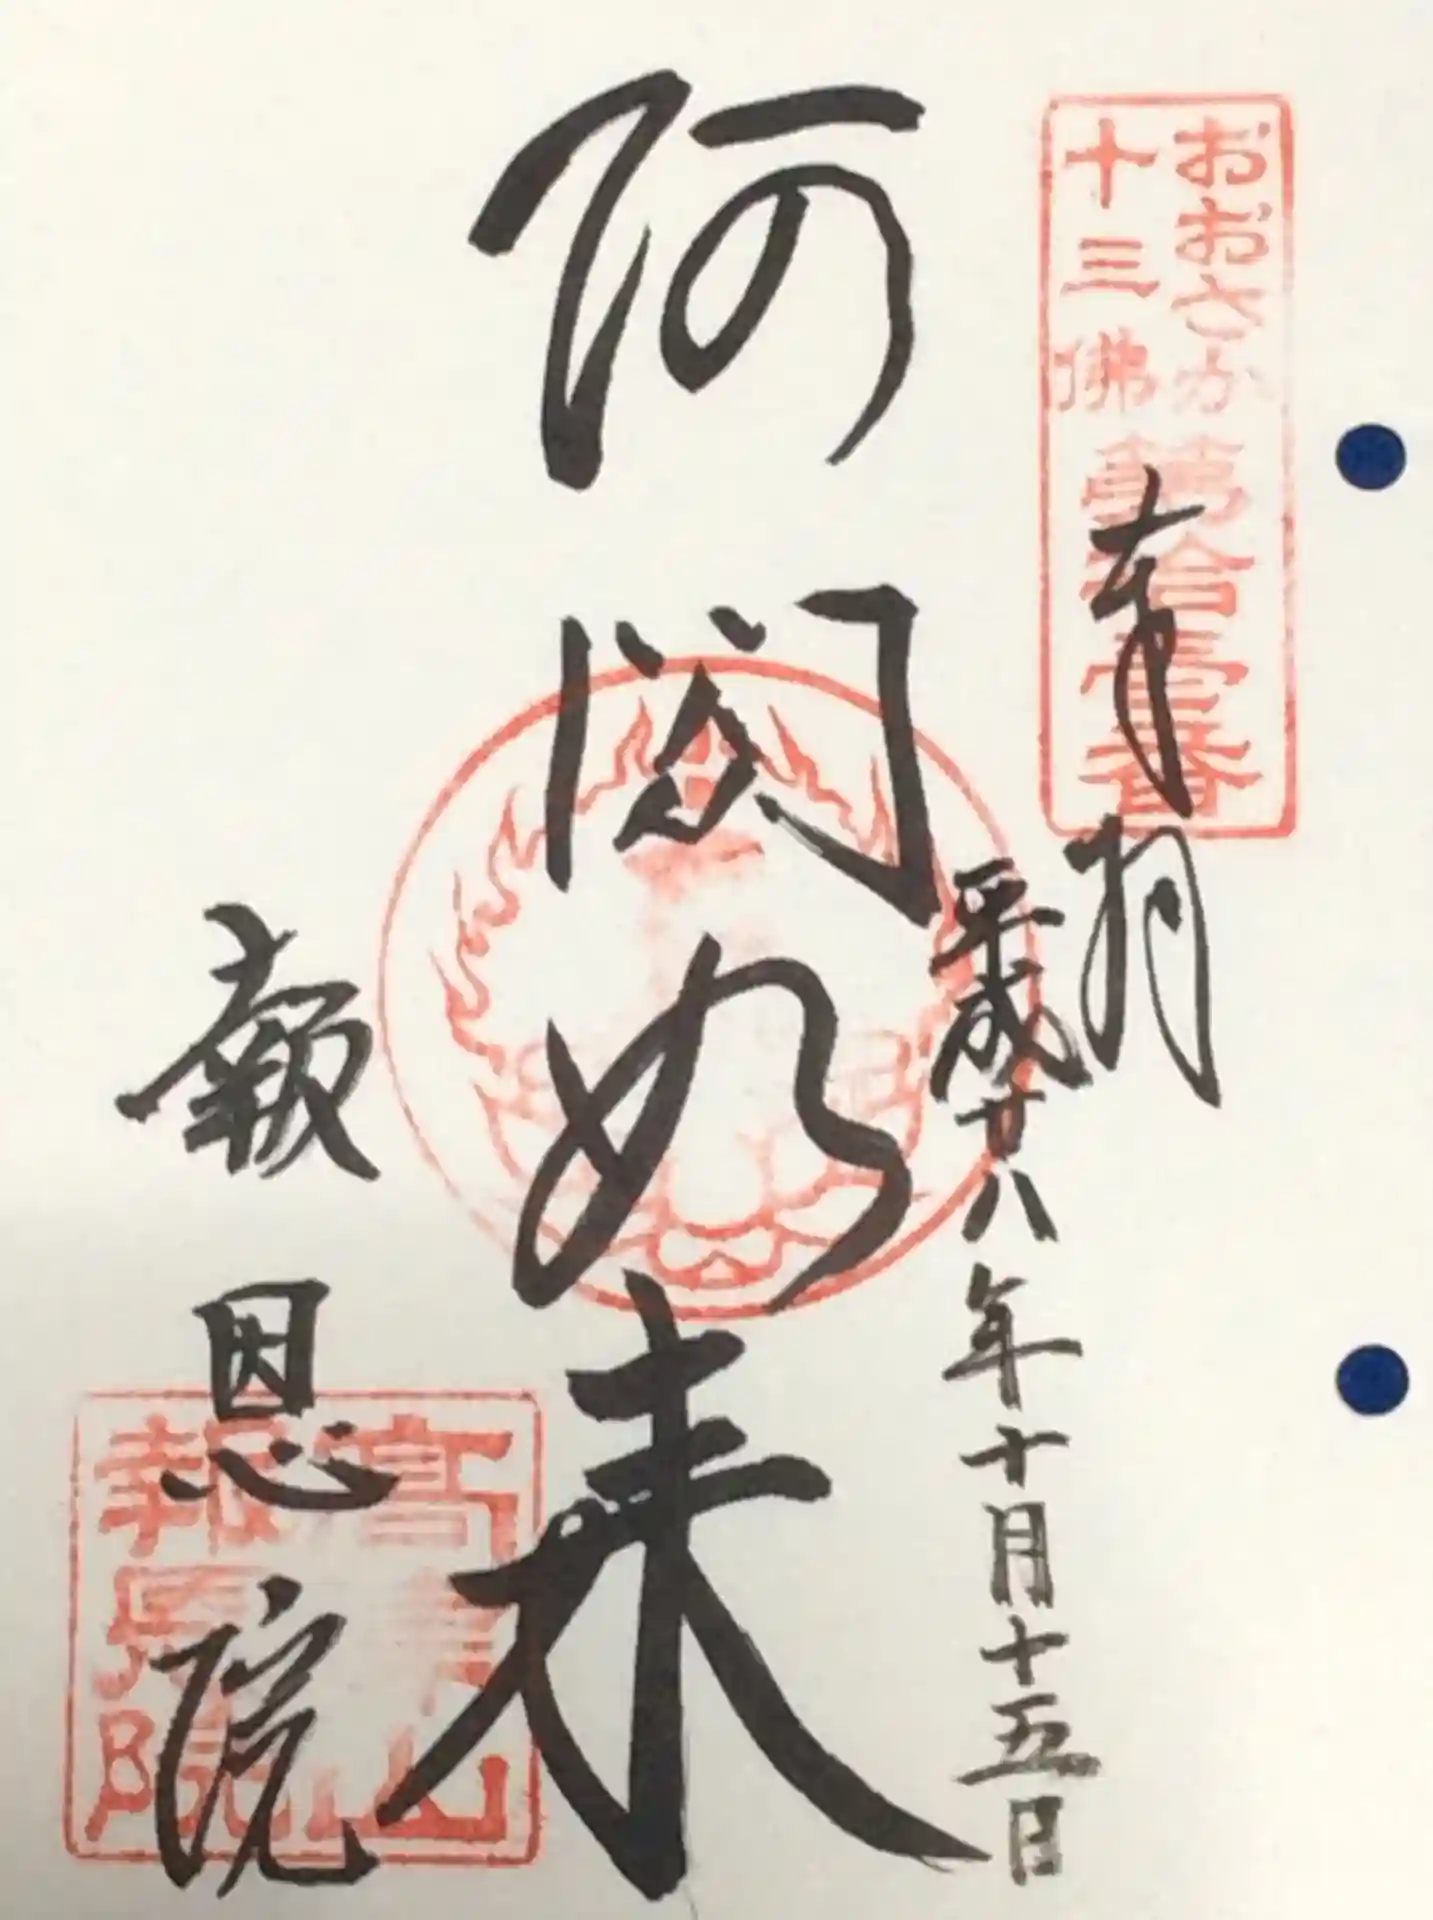 おおさか
十三佛
第拾壹番
奉拝
平成廿八年十月十五日
阿閦如来
報恩院
高
山
報恩院